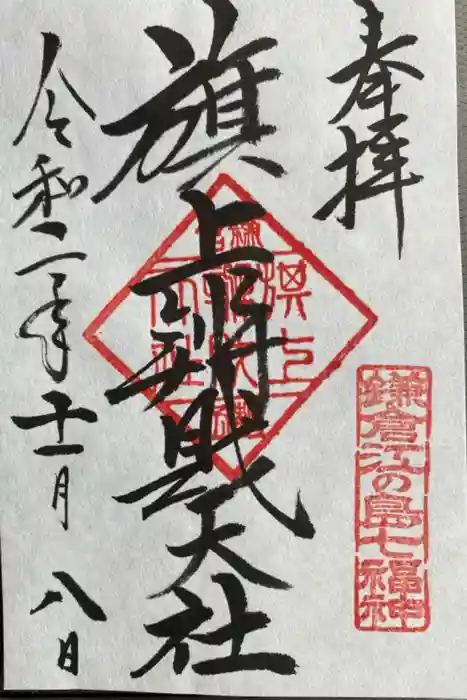 奉拝
鎌倉江の島七福神
旗上辨財天社
令和二年十一月八日